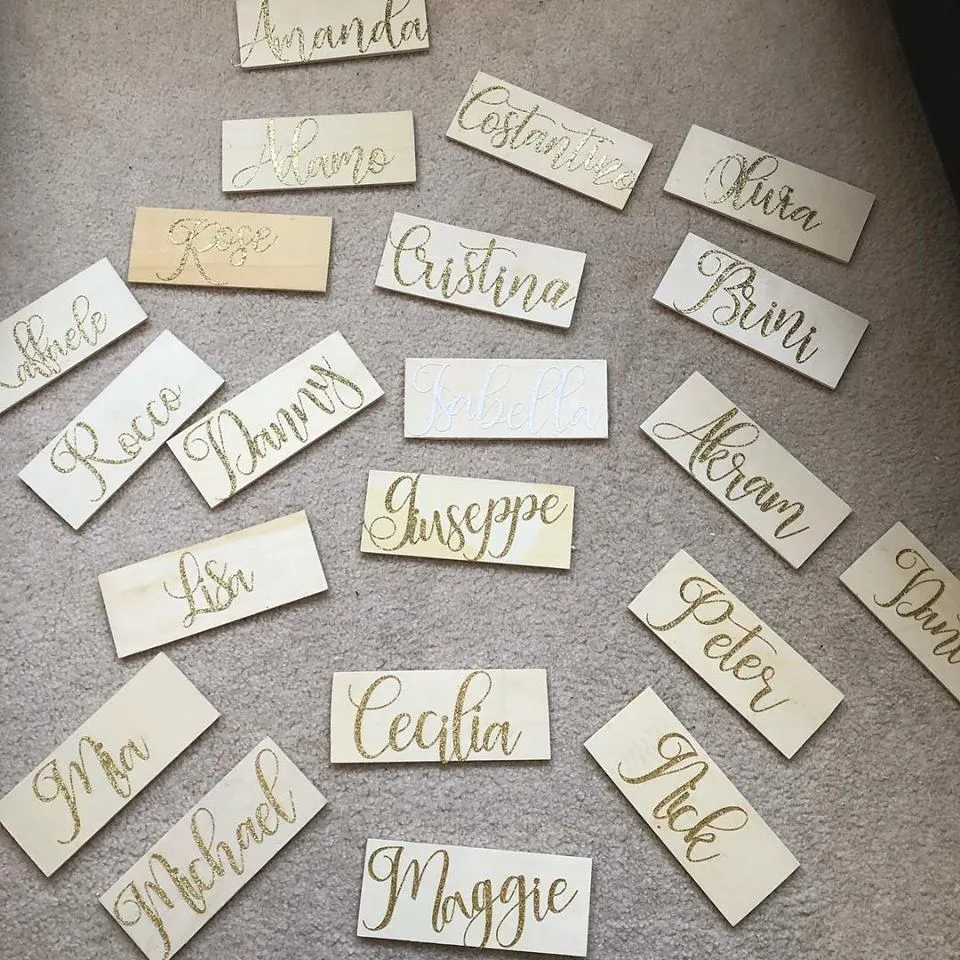 Amanda
Costantino
Adamo
Olura
Rose
Cristina
Brini
affaele
Rocco
Danny
Isabella
Akram
Giuseppe
Lisa
Peter
Dani
Cecilia
Mia
Nick
Michael
Maggie